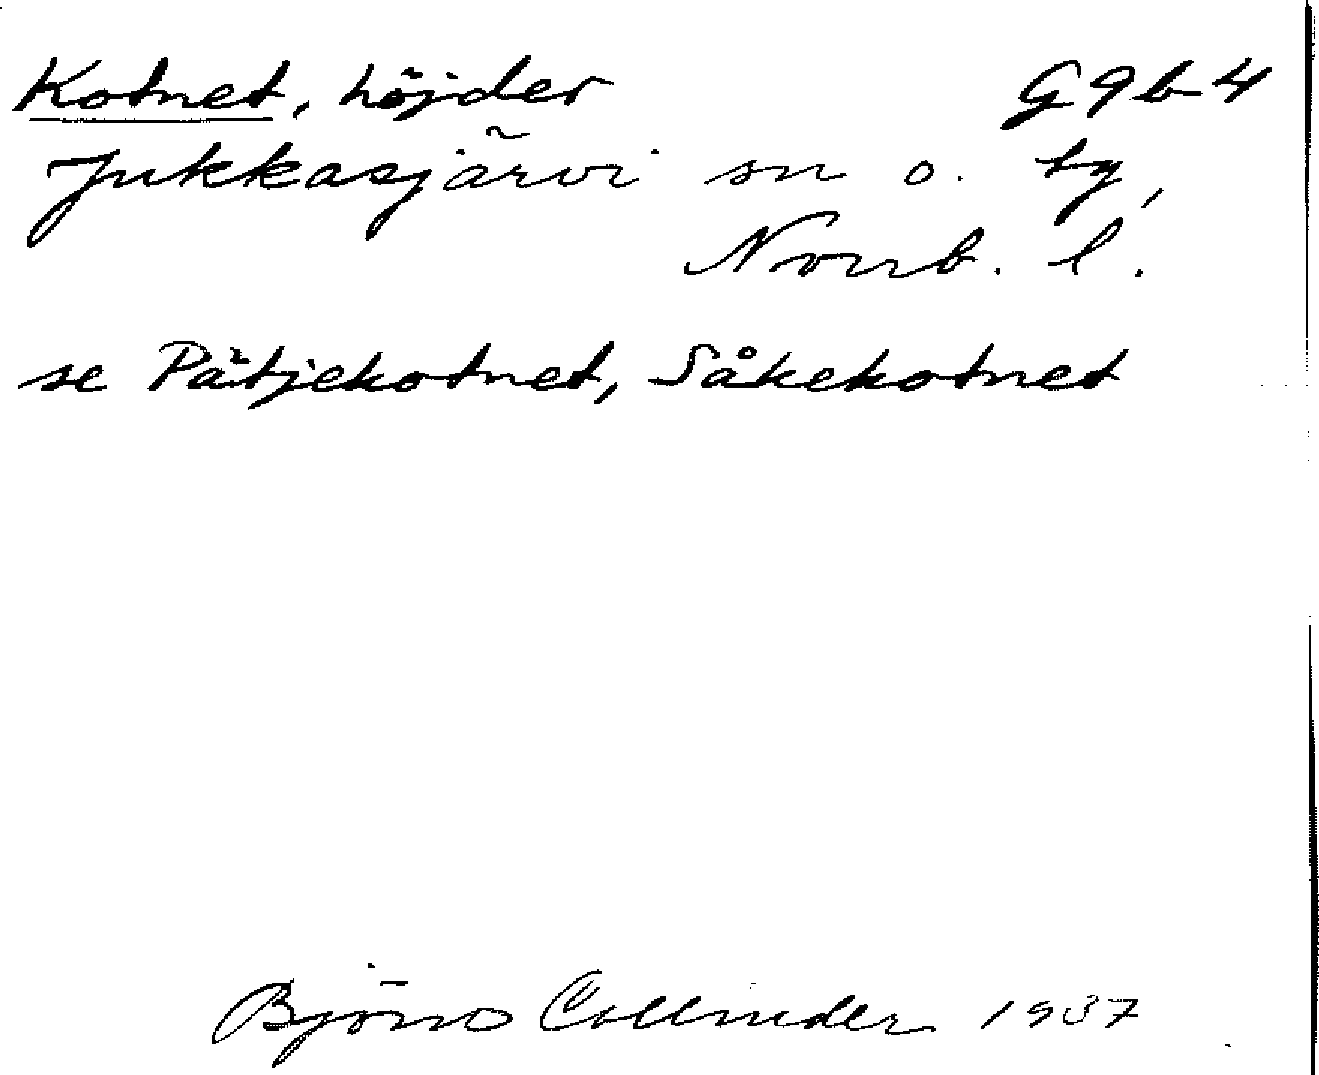 Kotnet, höjder G9b4
Jukkasjärvi sn o. by,
Norrb. l.
se Påtjekotnet, Såkekotnet
Björn Collinder 1937